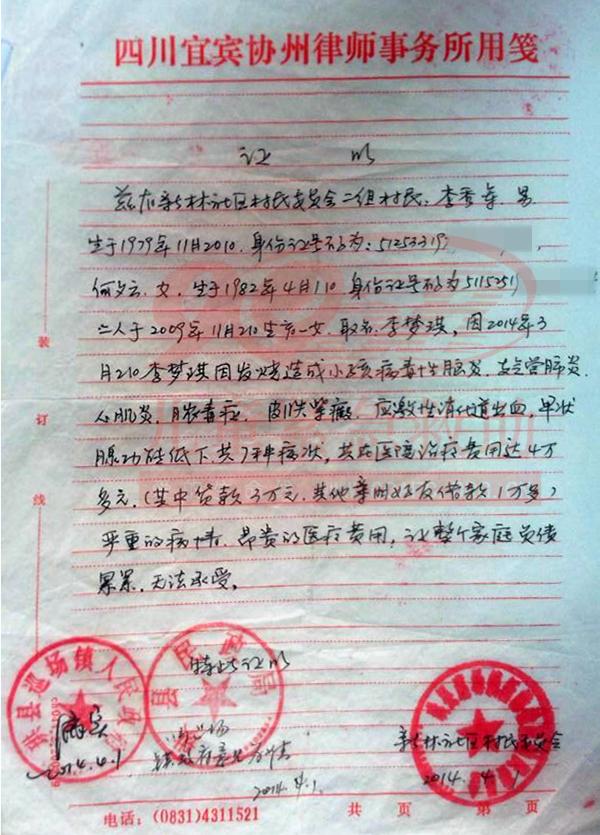 四川宜宾协州律师事务所用笺
证 明
兹有新林社区村民委员会二组村民, 李香 男
生于1979年11月20日. 身份证号码为: 51253319
何夕云, 女, 生于1982年4月1日 身份证号码为 5115251
二人于2009年11月21日生育一女, 取名: 李梦琪, 因2014年3
月21日李梦琪因发烧造成小孩病毒性脑炎. 支气管肺炎
心肌炎, 脓毒症, 皮肤紫癜. 应激性消化道出血, 甲状
腺功能低下共7种病状, 共在医院治疗费用达4万
多元. (其中贷款3万元. 其他亲朋好友借款1万多)
严重的病情. 昂贵的医疗费用, 让整个家庭负债
累累, 无法承受.
装
订
线
特此证明
珙县巡场镇人民政府
县民政局
属实
2014.4.1
2014.4.1.
新林社区村民委员会
2014.4.
电话: (0831)4311521 共 页 第 页